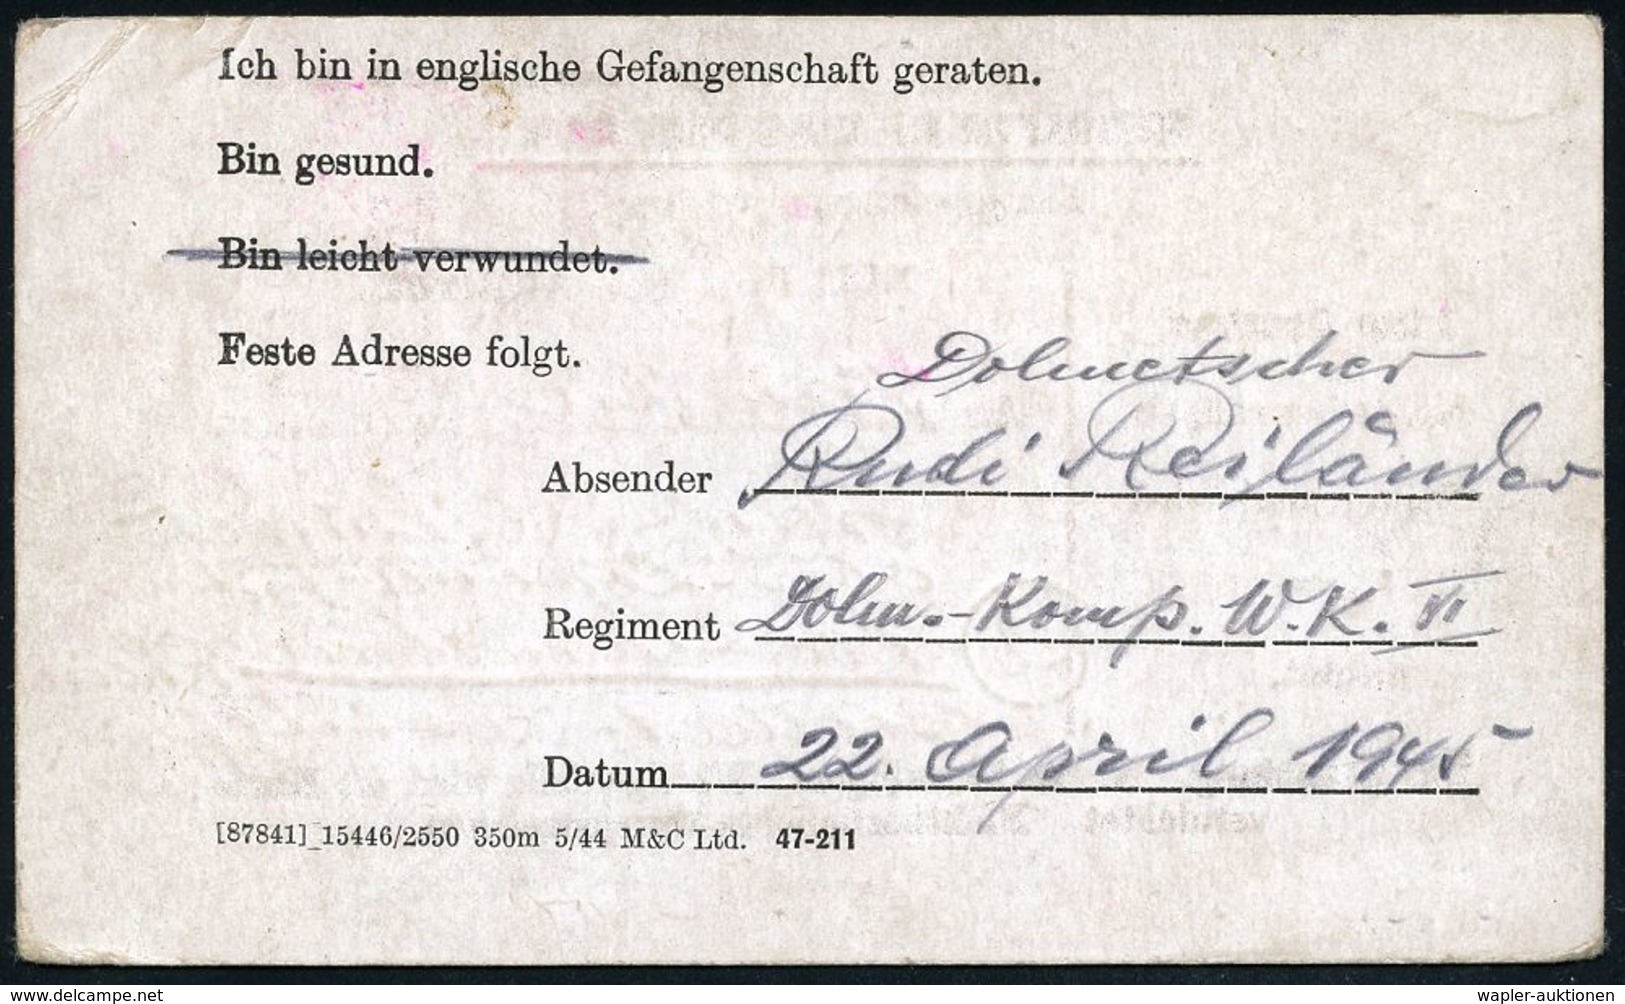 Ich bin in englische Gefangenschaft geraten.
Bin gesund.
Bin leicht verwundet.
Feste Adresse folgt.
Dolmetscher
Absender Rudi Reiländer
Regiment Dolm.-Komp. W.K. VI
Datum 22. April 1945
[87841] 15446/2550 350m 5/44 M&C Ltd. 47-211
wapler-auktionen